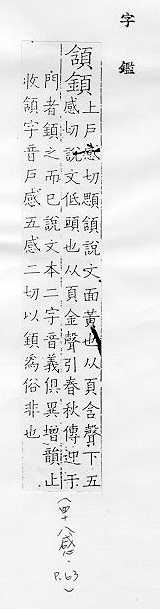 字鑑
頷顉
上戶感切顑頷說文面黃也从頁含聲下五
感切說文低頭也从頁金聲引春秋傳迎于
門者顉之而已說文本二字音義俱異增韻止
收頷字音戶感五感二切以顉為俗非也
(四十八感. P.63)